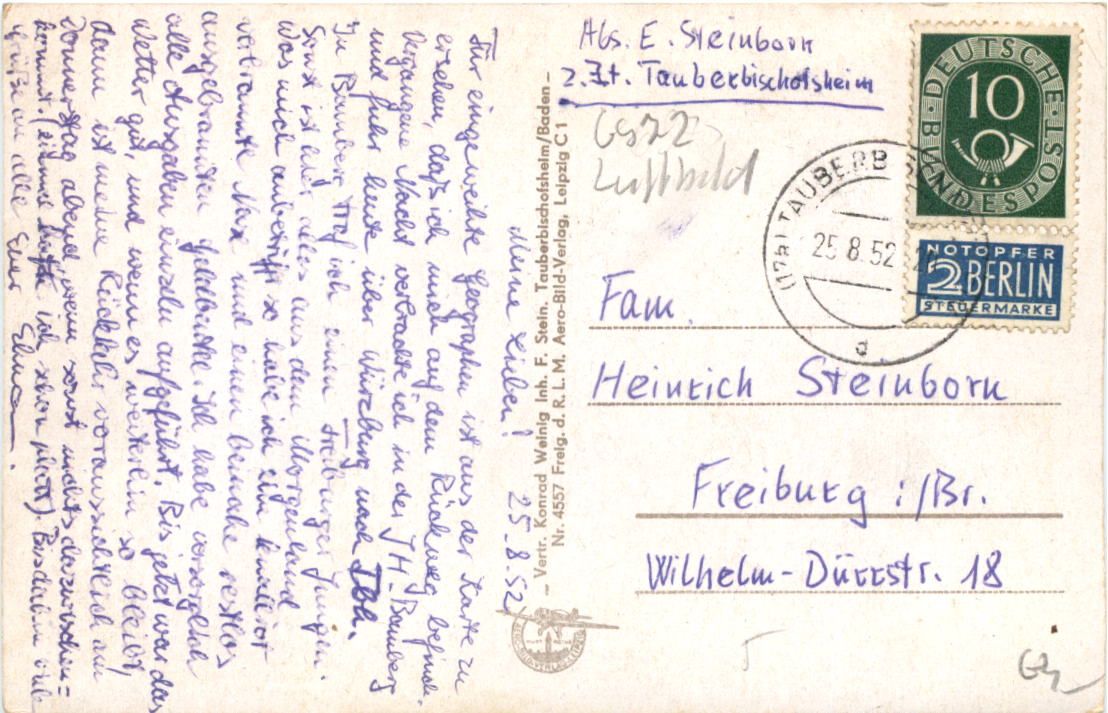 Meine Lieben! 25.8.52
Für eingeweihte Geographen ist aus der Karte zu
ersehen, daß ich mich auf dem Rückweg befinde.
Vergangene Nacht verbrachte ich in der JH. Bamberg
und fuhr heute über Würzburg nach Tbh.
In Bamberg traf ich einen Freiburger Jungen.
Sonst ist auch alles aus dem Morgenland
Was mich anbetrifft so habe ich eine
verbrannte Nase und einen beinahe restlos
ausgebrannten Geldbeutel. Ich habe vorsorglich
alle Ausgaben einzeln aufgeführt. Bis jetzt war das
Wetter gut, und wenn es weiterhin so bleibt,
dann ist meine Rückkehr voraussichtlich am
Donnerstag abend wenn sonst nichts dazwischen=
kommt, (einmal hatte ich schon platt). Bis dahin viele
Grüße an alle Euer
– Vertr. Konrad Weinig Inh. F. Stein. Tauberbischofsheim/Baden –
Nr. 4557 Freig. d. R. L. M. Aero-Bild-Verlag, Leipzig C 1
Abs. E. Steinborn
z. Zt. Tauberbischofsheim
Luftbild
DEUTSCHE BUNDESPOST
10
NOTOPFER
2 BERLIN
STEUERMARKE
(17a) TAUBERB
25.8.52
d
Fam.
Heinrich Steinborn
Freiburg i/Br.
Wilhelm-Dürrstr. 18